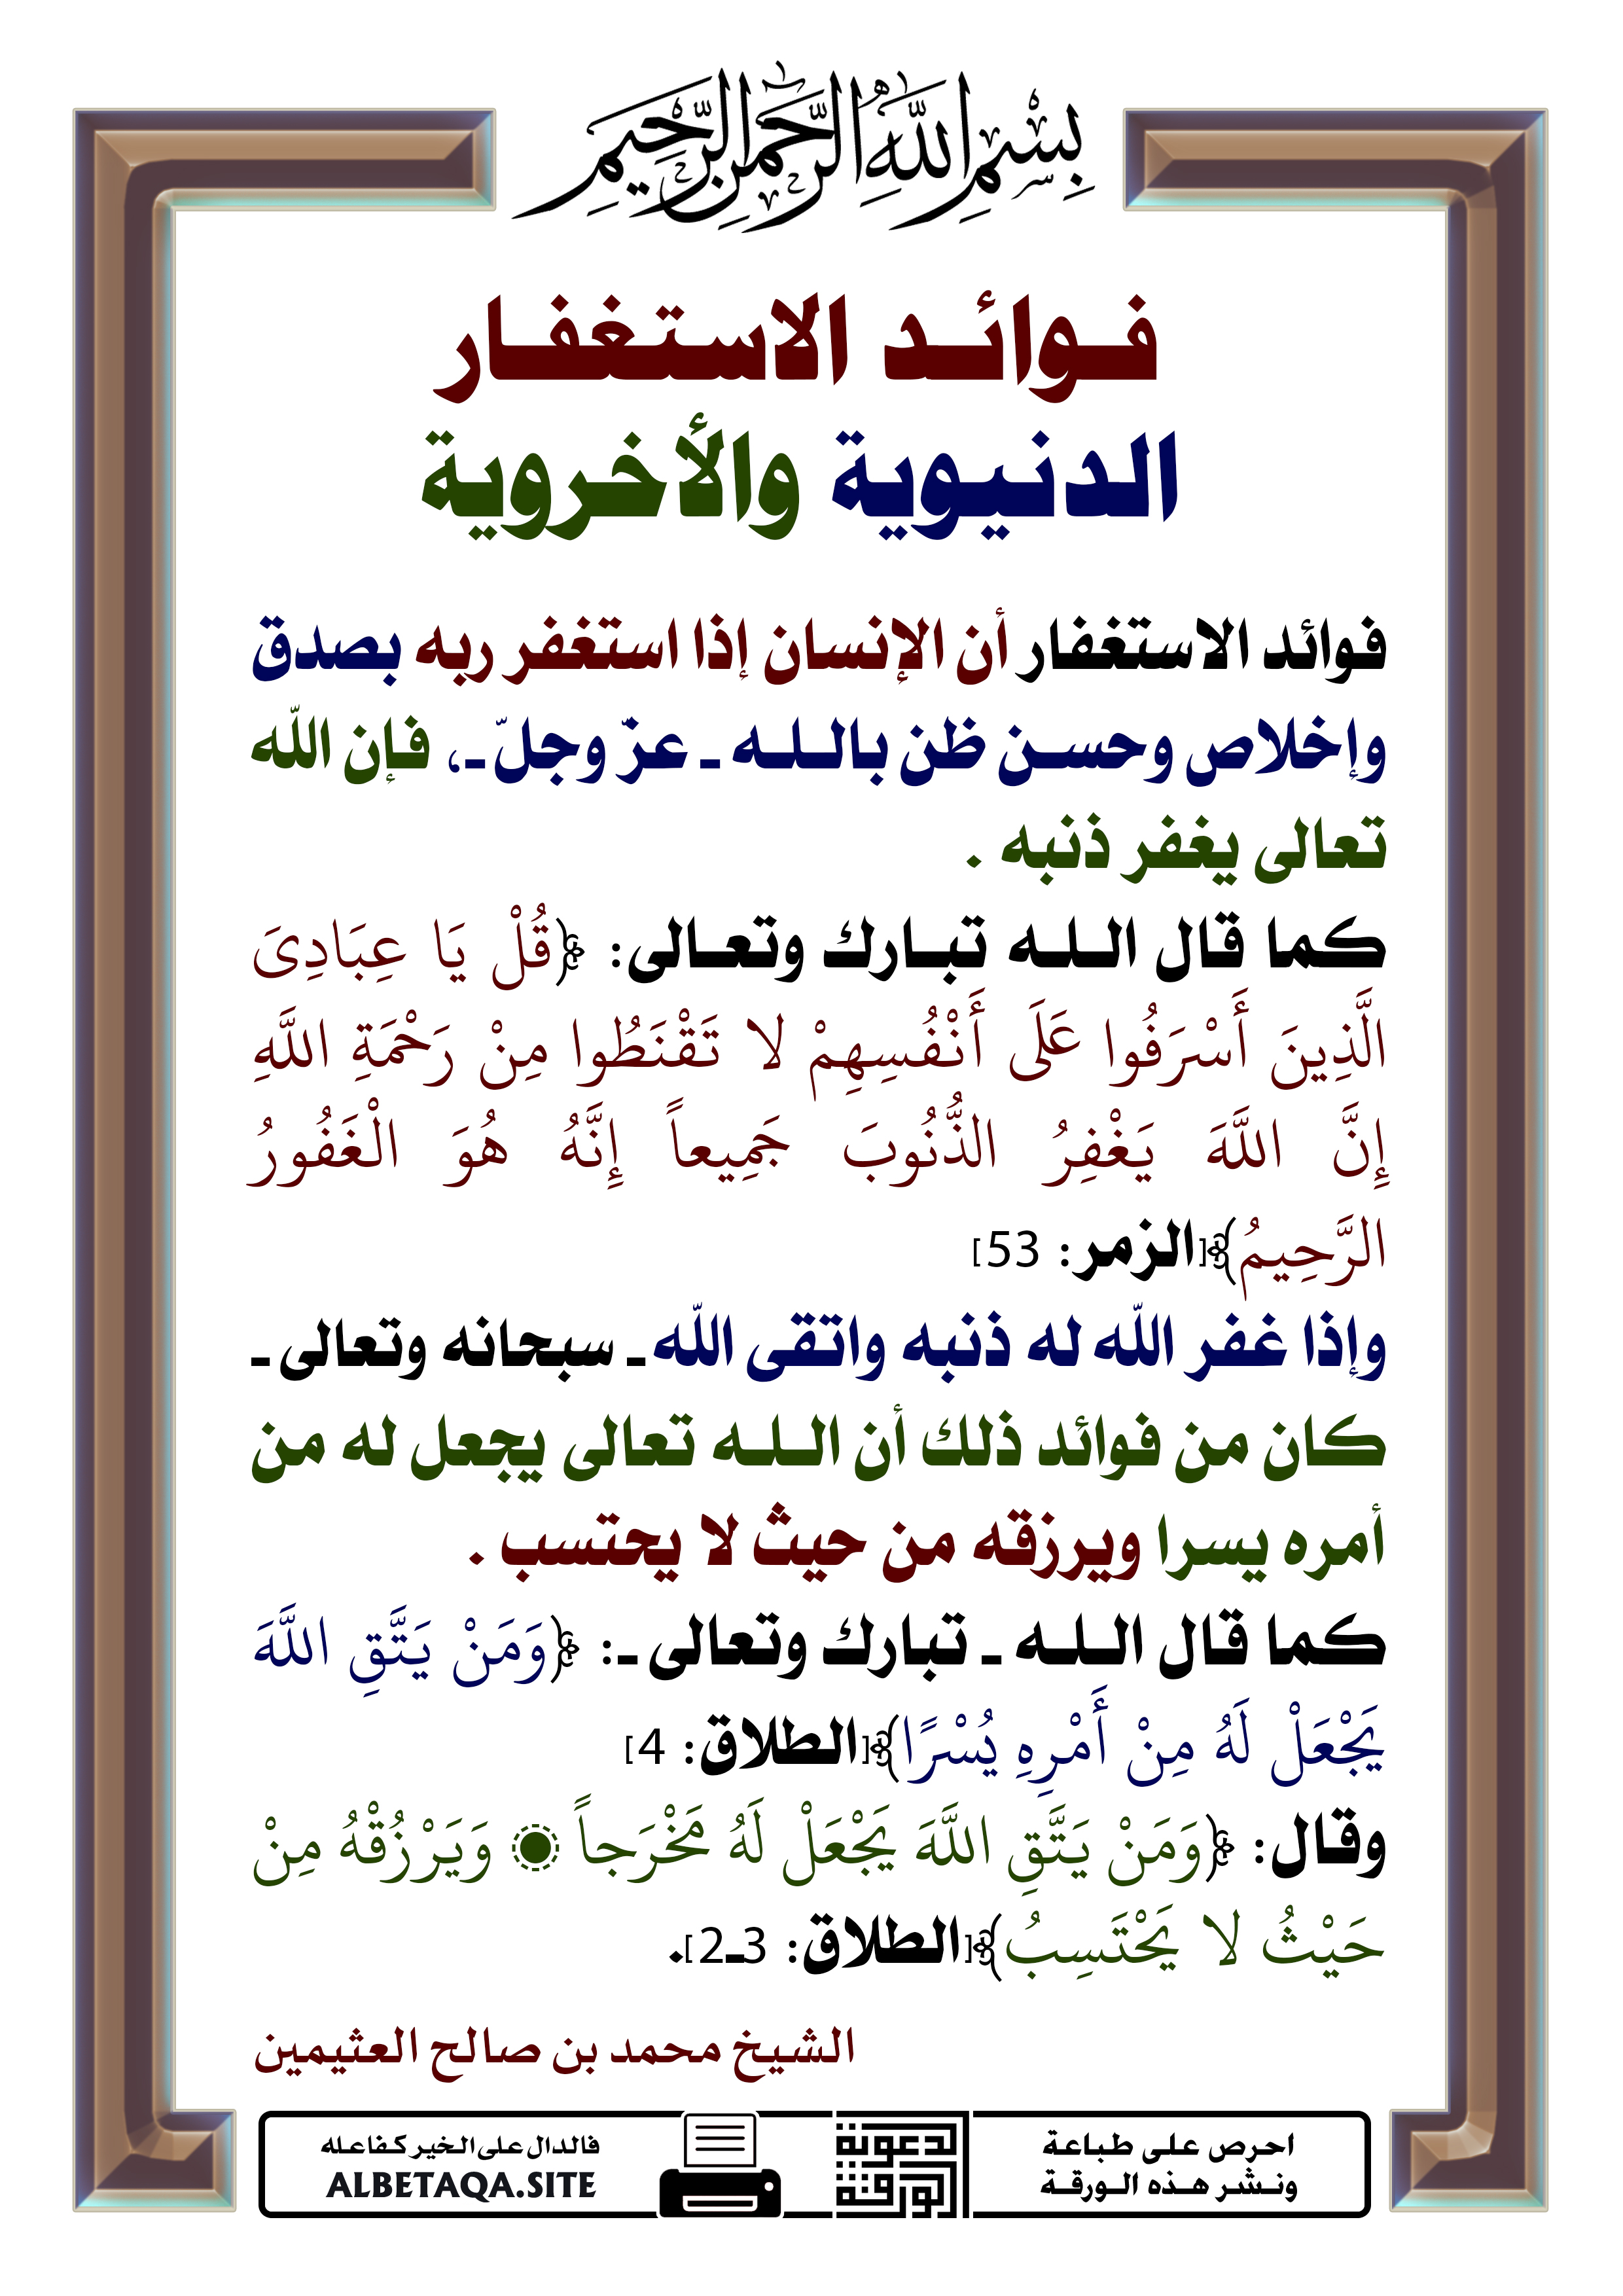 بِسْمِ اللَّهِ الرَّحْمَٰنِ الرَّحِيمِ
فـوائـد الاستغفـار
الدنيوية والأخروية
فوائد الاستغفار أن الإنسان إذا استغفر ربه بصدق
وإخلاص وحسـن ظن باللـه ـ عزّ وجلّ ـ، فإن الله
تعالى يغفر ذنبه .
كما قال اللـه تبـارك وتعـالى: ﴿قُلْ يَا عِبَادِىَ
الَّذِينَ أَسْرَفُوا عَلَى أَنْفُسِهِمْ لا تَقْنَطُوا مِنْ رَحْمَةِ اللَّهِ
إِنَّ اللَّهَ يَغْفِرُ الذُّنُوبَ جَمِيعاً إِنَّهُ هُوَ الْغَفُورُ
الرَّحِيمُ﴾[الزمر: 53]
وإذا غفر الله له ذنبه واتقى الله ـ سبحانه وتعالى ـ
كان من فوائد ذلك أن اللـه تعالى يجعل له من
أمره يسرا ويرزقه من حيث لا يحتسب .
كما قال اللـه ـ تبارك وتعالى ـ: ﴿وَمَنْ يَتَّقِ اللَّهَ
يَجْعَلْ لَهُ مِنْ أَمْرِهِ يُسْرًا﴾[الطلاق: 4]
وقال: ﴿وَمَنْ يَتَّقِ اللَّهَ يَجْعَلْ لَهُ مَخْرَجاً ۝ وَيَرْزُقْهُ مِنْ
حَيْثُ لا يَحْتَسِبُ﴾[الطلاق: 3ـ2].
الشيخ محمد بن صالح العثيمين
احرص على طباعة
ونشر هذه الورقة
الدعوية
الورقة
فالدال على الخير كفاعله
ALBETAQA.SITE